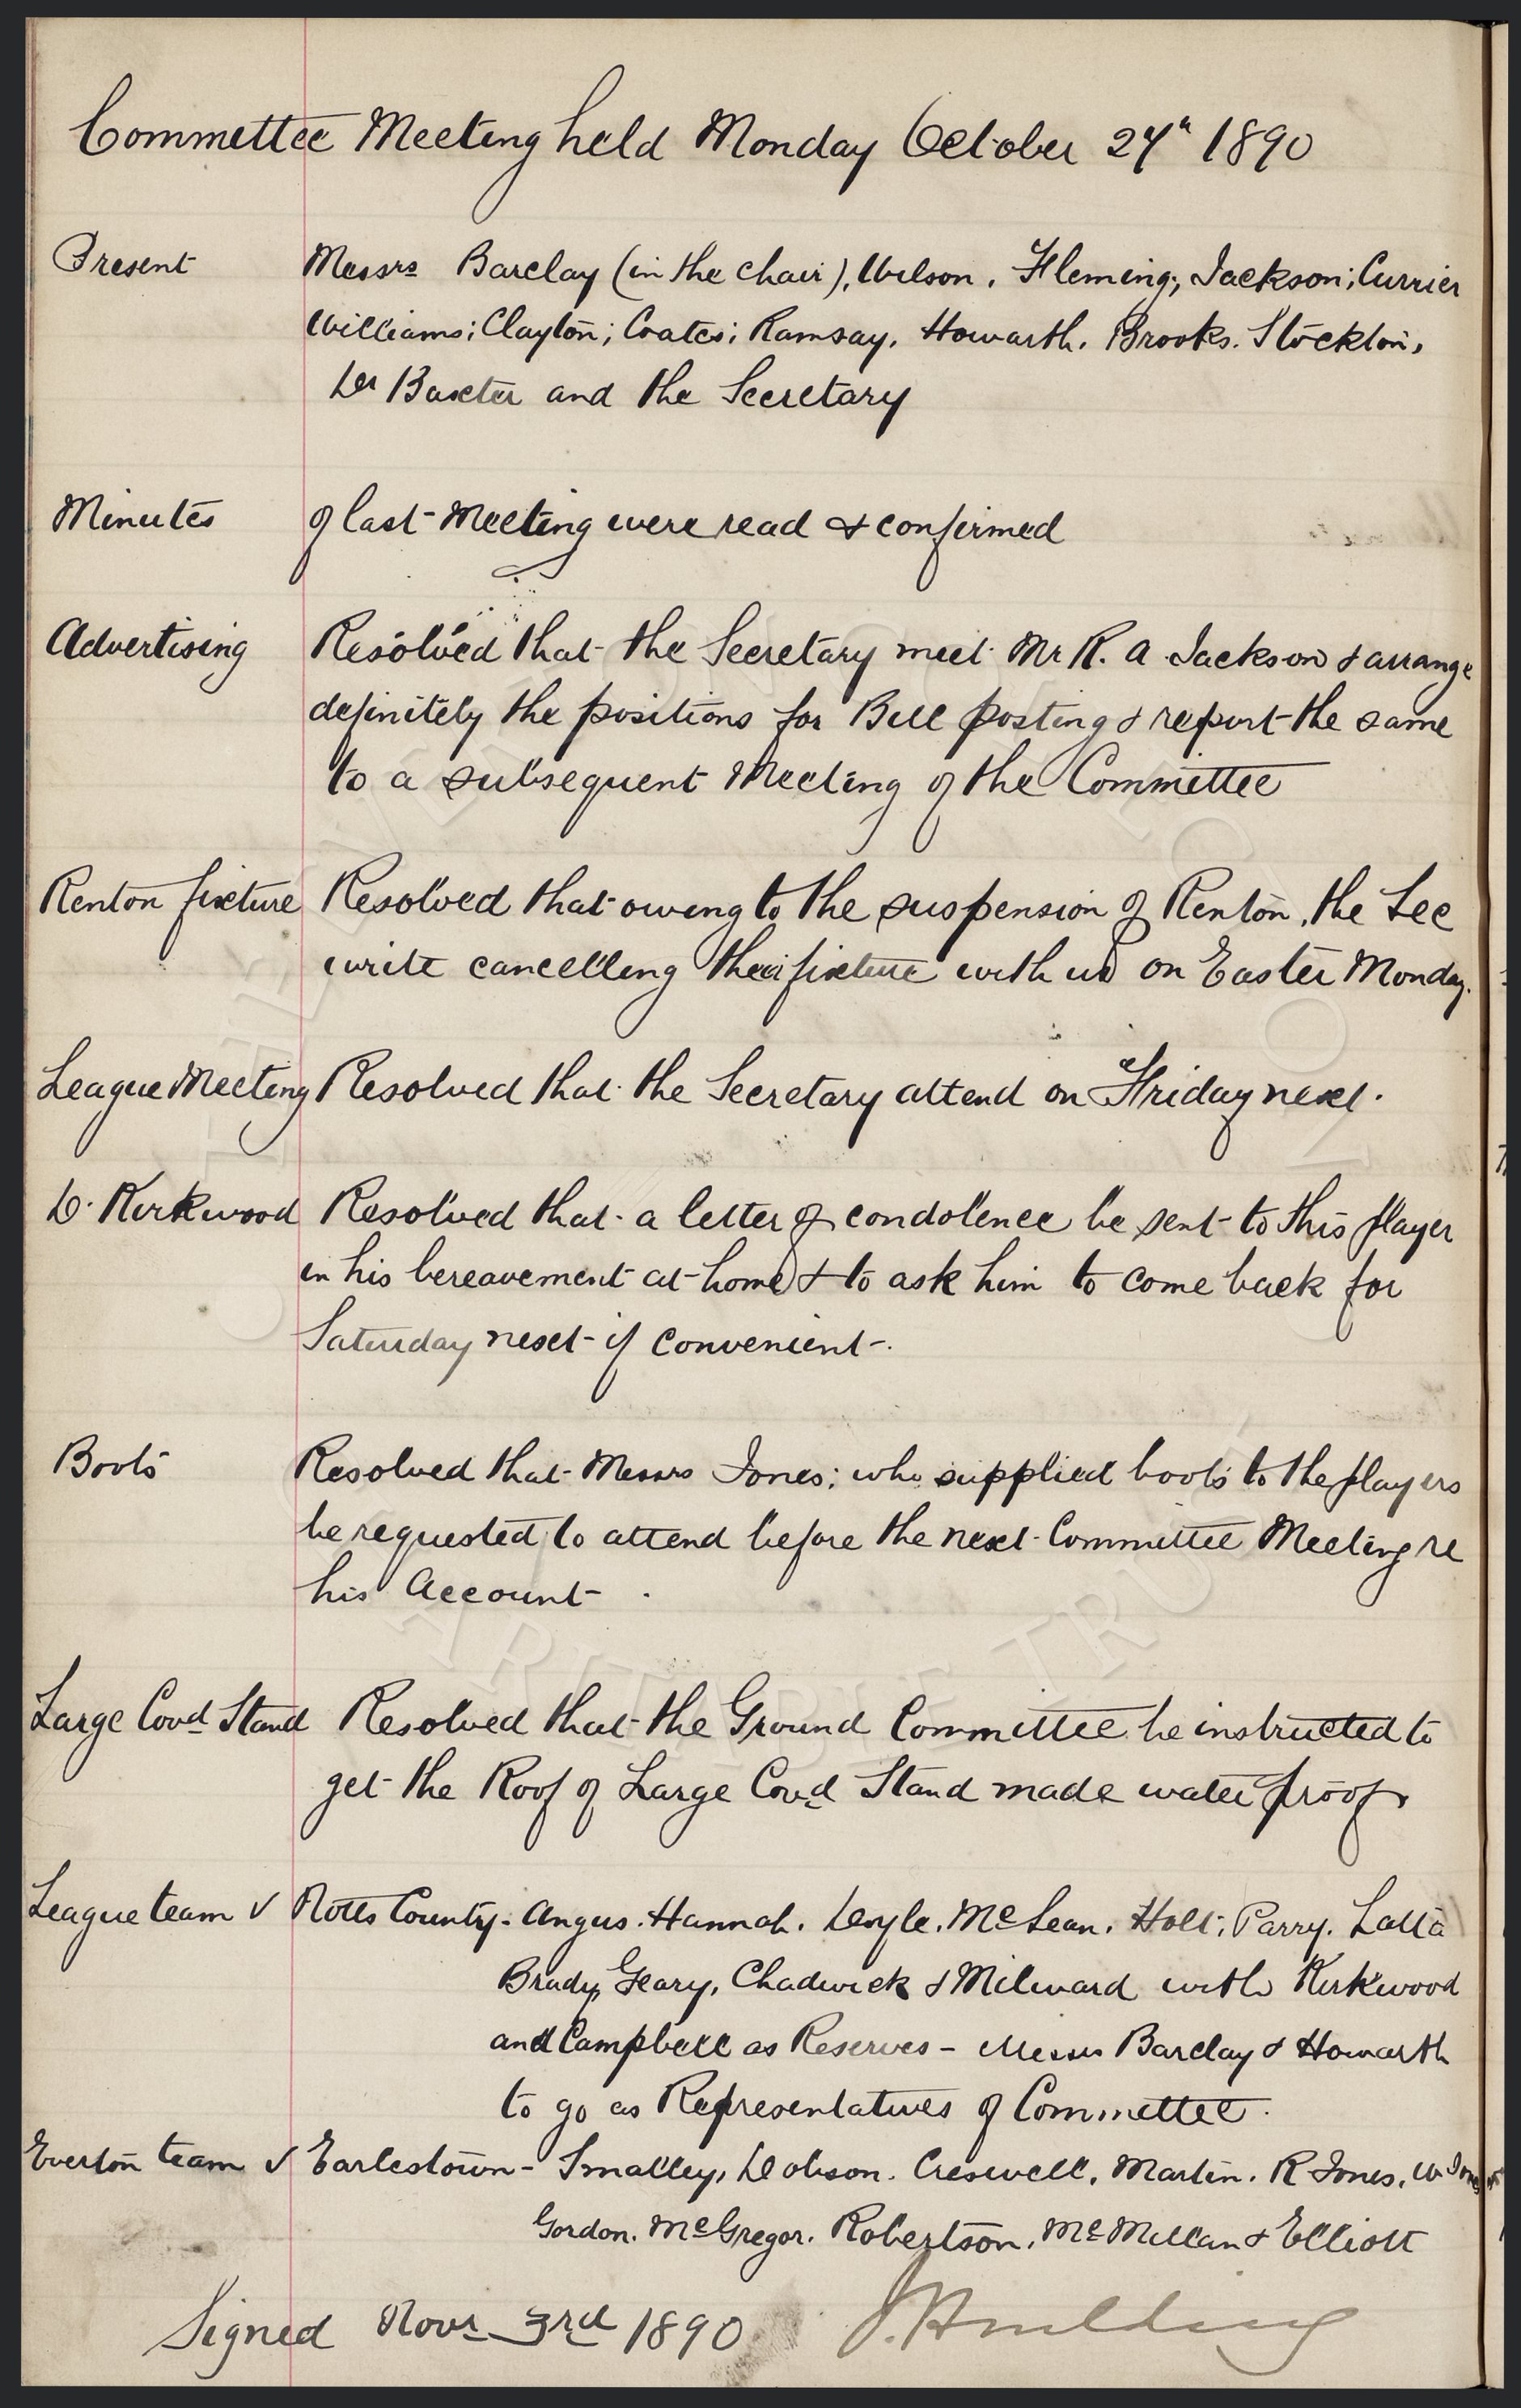 Committee Meeting held Monday October 27th 1890
Present Messrs Barclay (in the chair), Wilson, Fleming, Jackson; Currier
Williams; Clayton; Coates; Ramsay, Howarth, Brooks, Stockton,
Dr Baxter and the Secretary
Minutes of last Meeting were read & confirmed
Advertising Resolved that the Secretary meet Mr R. A Jackson & arrange
definitely the positions for Bill posting & report the same
to a subsequent Meeting of the Committee
Renton fixture Resolved that owing to the suspension of Renton, the Sec
write cancelling their fixture with us on Easter Monday.
League Meeting Resolved that the Secretary attend on Friday next.
D. Kirkwood Resolved that a letter of condolence be sent to this player
in his bereavement at home & to ask him to come back for
Saturday next if convenient.
Boots Resolved that Messrs Jones; who supplied boots to the players
be requested to attend before the next Committee Meeting re
his Account
Large Covd Stand Resolved that the Ground Committee be instructed to
get the Roof of Large Covd Stand made water proof
League team v Notts County - Angus. Hannah. Doyle. McLean. Holt; Parry. Latta
Brady, Geary, Chadwick & Milward with Kirkwood
and Campbell as Reserves - Messrs Barclay & Howarth
to go as Representatives of Committee.
Everton team v Earlestown - Smalley, Dobson. Creswell, Martin. R Jones, W Jones
Gordon. McGregor. Robertson, McMillan & Elliott
Signed Novr 3rd 1890 J. Houlding